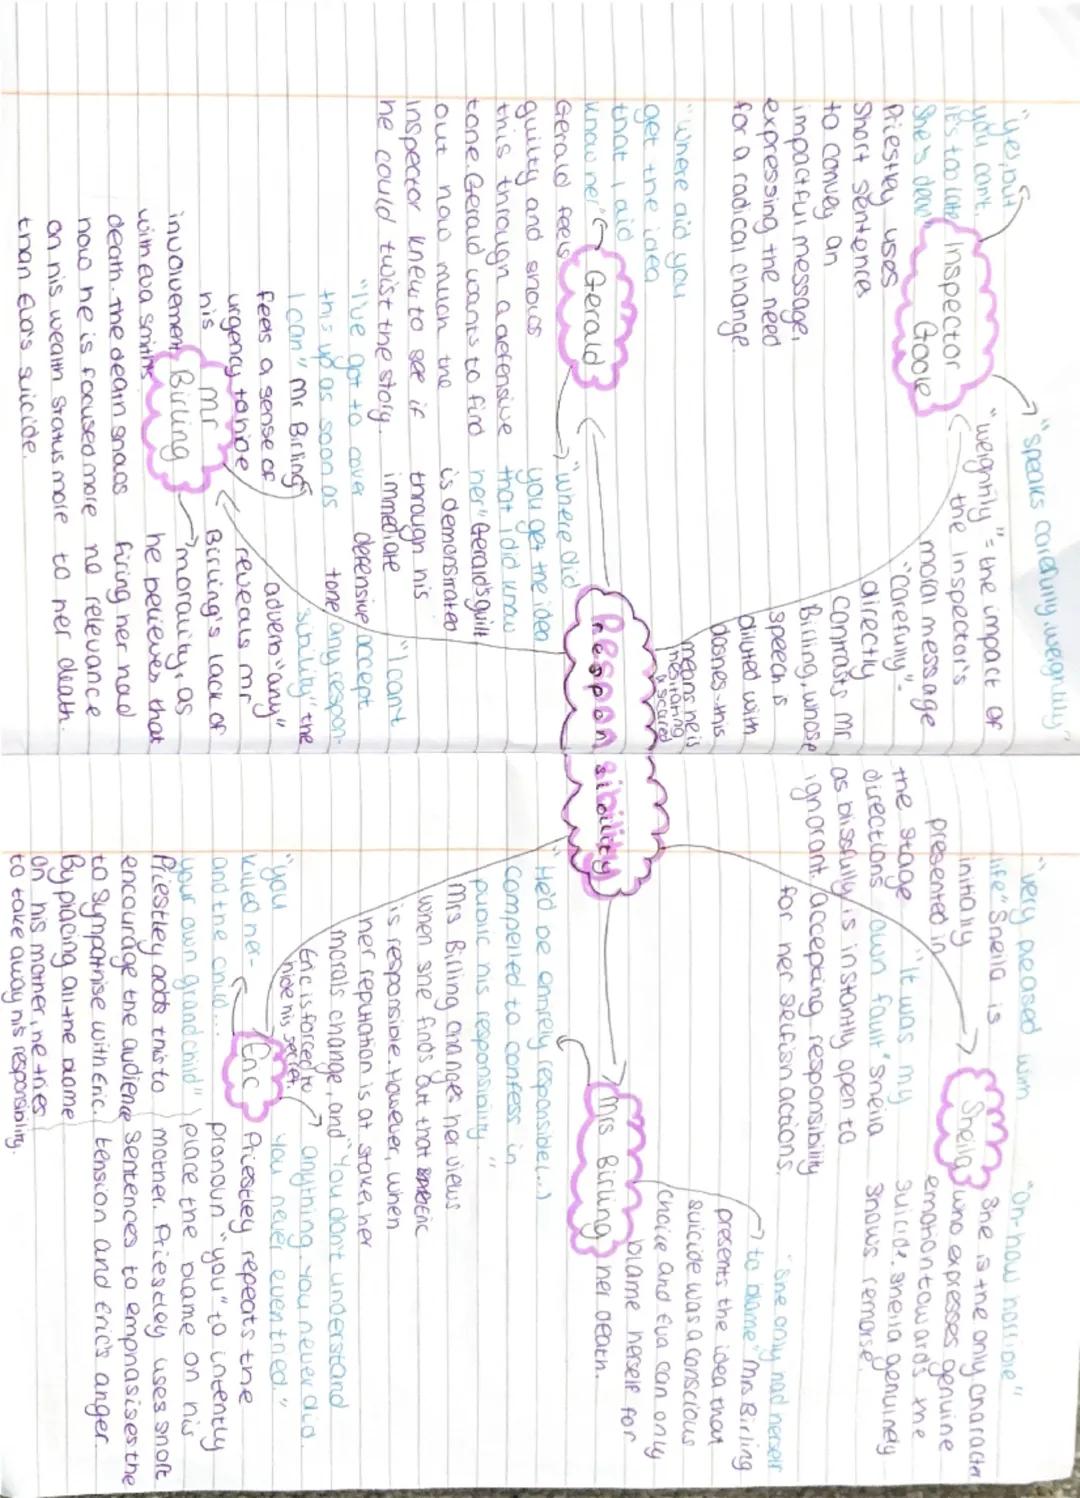 Responsibility
Inspector
Goole
"speaks carefully, weightily"
"weightily" = the impact of
the inspector's
moral message
"carefully".
directly
contrasts Mr
Birling, whose
speech is
diluted with
dashes - this
means he is
hesitating
& scared
"yes, but
you can't.
it's too late.
She's dead"
Priestley uses
short sentences
to convey an
impactful message,
expressing the need
for a radical change.
Gerald
"where did you
get the idea
that I did
know her"
Gerald feels
guilty and shows
this through a defensive
tone. Gerald wants to find
out how much the
inspector knew to see if
he could twist the story.
"where did
you get the idea
that I did know
her" Gerald's guilt
is demonstrated
through his
immediate
defensive
tone
Mr
Birling
"I've got to cover
this up as soon as
I can" Mr Birling
feels a sense of
urgency to hide
his
involvement
with Eva Smith's
death. The death shows
how he is focused more
on his wealth status more
than Eva's suicide.
"I can't
accept
any respon-
sibility" the
adverb "any"
reveals Mr
Birling's lack of
morality, as
he believes that
firing her had
no relevance
to her death.
Sheila
"very pleased with
life" Sheila is
initially
presented in
the stage
directions
as blissfully
ignorant.
"It was my
own fault" Sheila
is instantly open to
accepting responsibility
for her selfish actions.
"Oh - how horrible"
She is the only character
who expresses genuine
emotion towards the
suicide. Sheila genuinely
shows remorse.
Mrs Birling
"She only had herself
to blame" Mrs Birling
presents the idea that
suicide was a conscious
choice and Eva can only
blame herself for
her death.
"He'd be entirely responsible(...)
compelled to confess in
public his responsibility."
Mrs Birling changes her views
when she finds out that Eric
is responsible. However, when
her reputation is at stake, her
morals change, and
Eric is forced to
hide his secret.
Eric
"You don't understand
anything. You never did.
You never even tried."
Priestley repeats the
pronoun "you" to intently
place the blame on his
mother. Priestley uses short
sentences to emphasises the
tension and Eric's anger.
"you
killed her-
and the child...
your own grandchild"
Priestley adds this to
encourage the audience
to sympathise with Eric.
By placing all the blame
on his mother, he tries
to take away his responsibility.